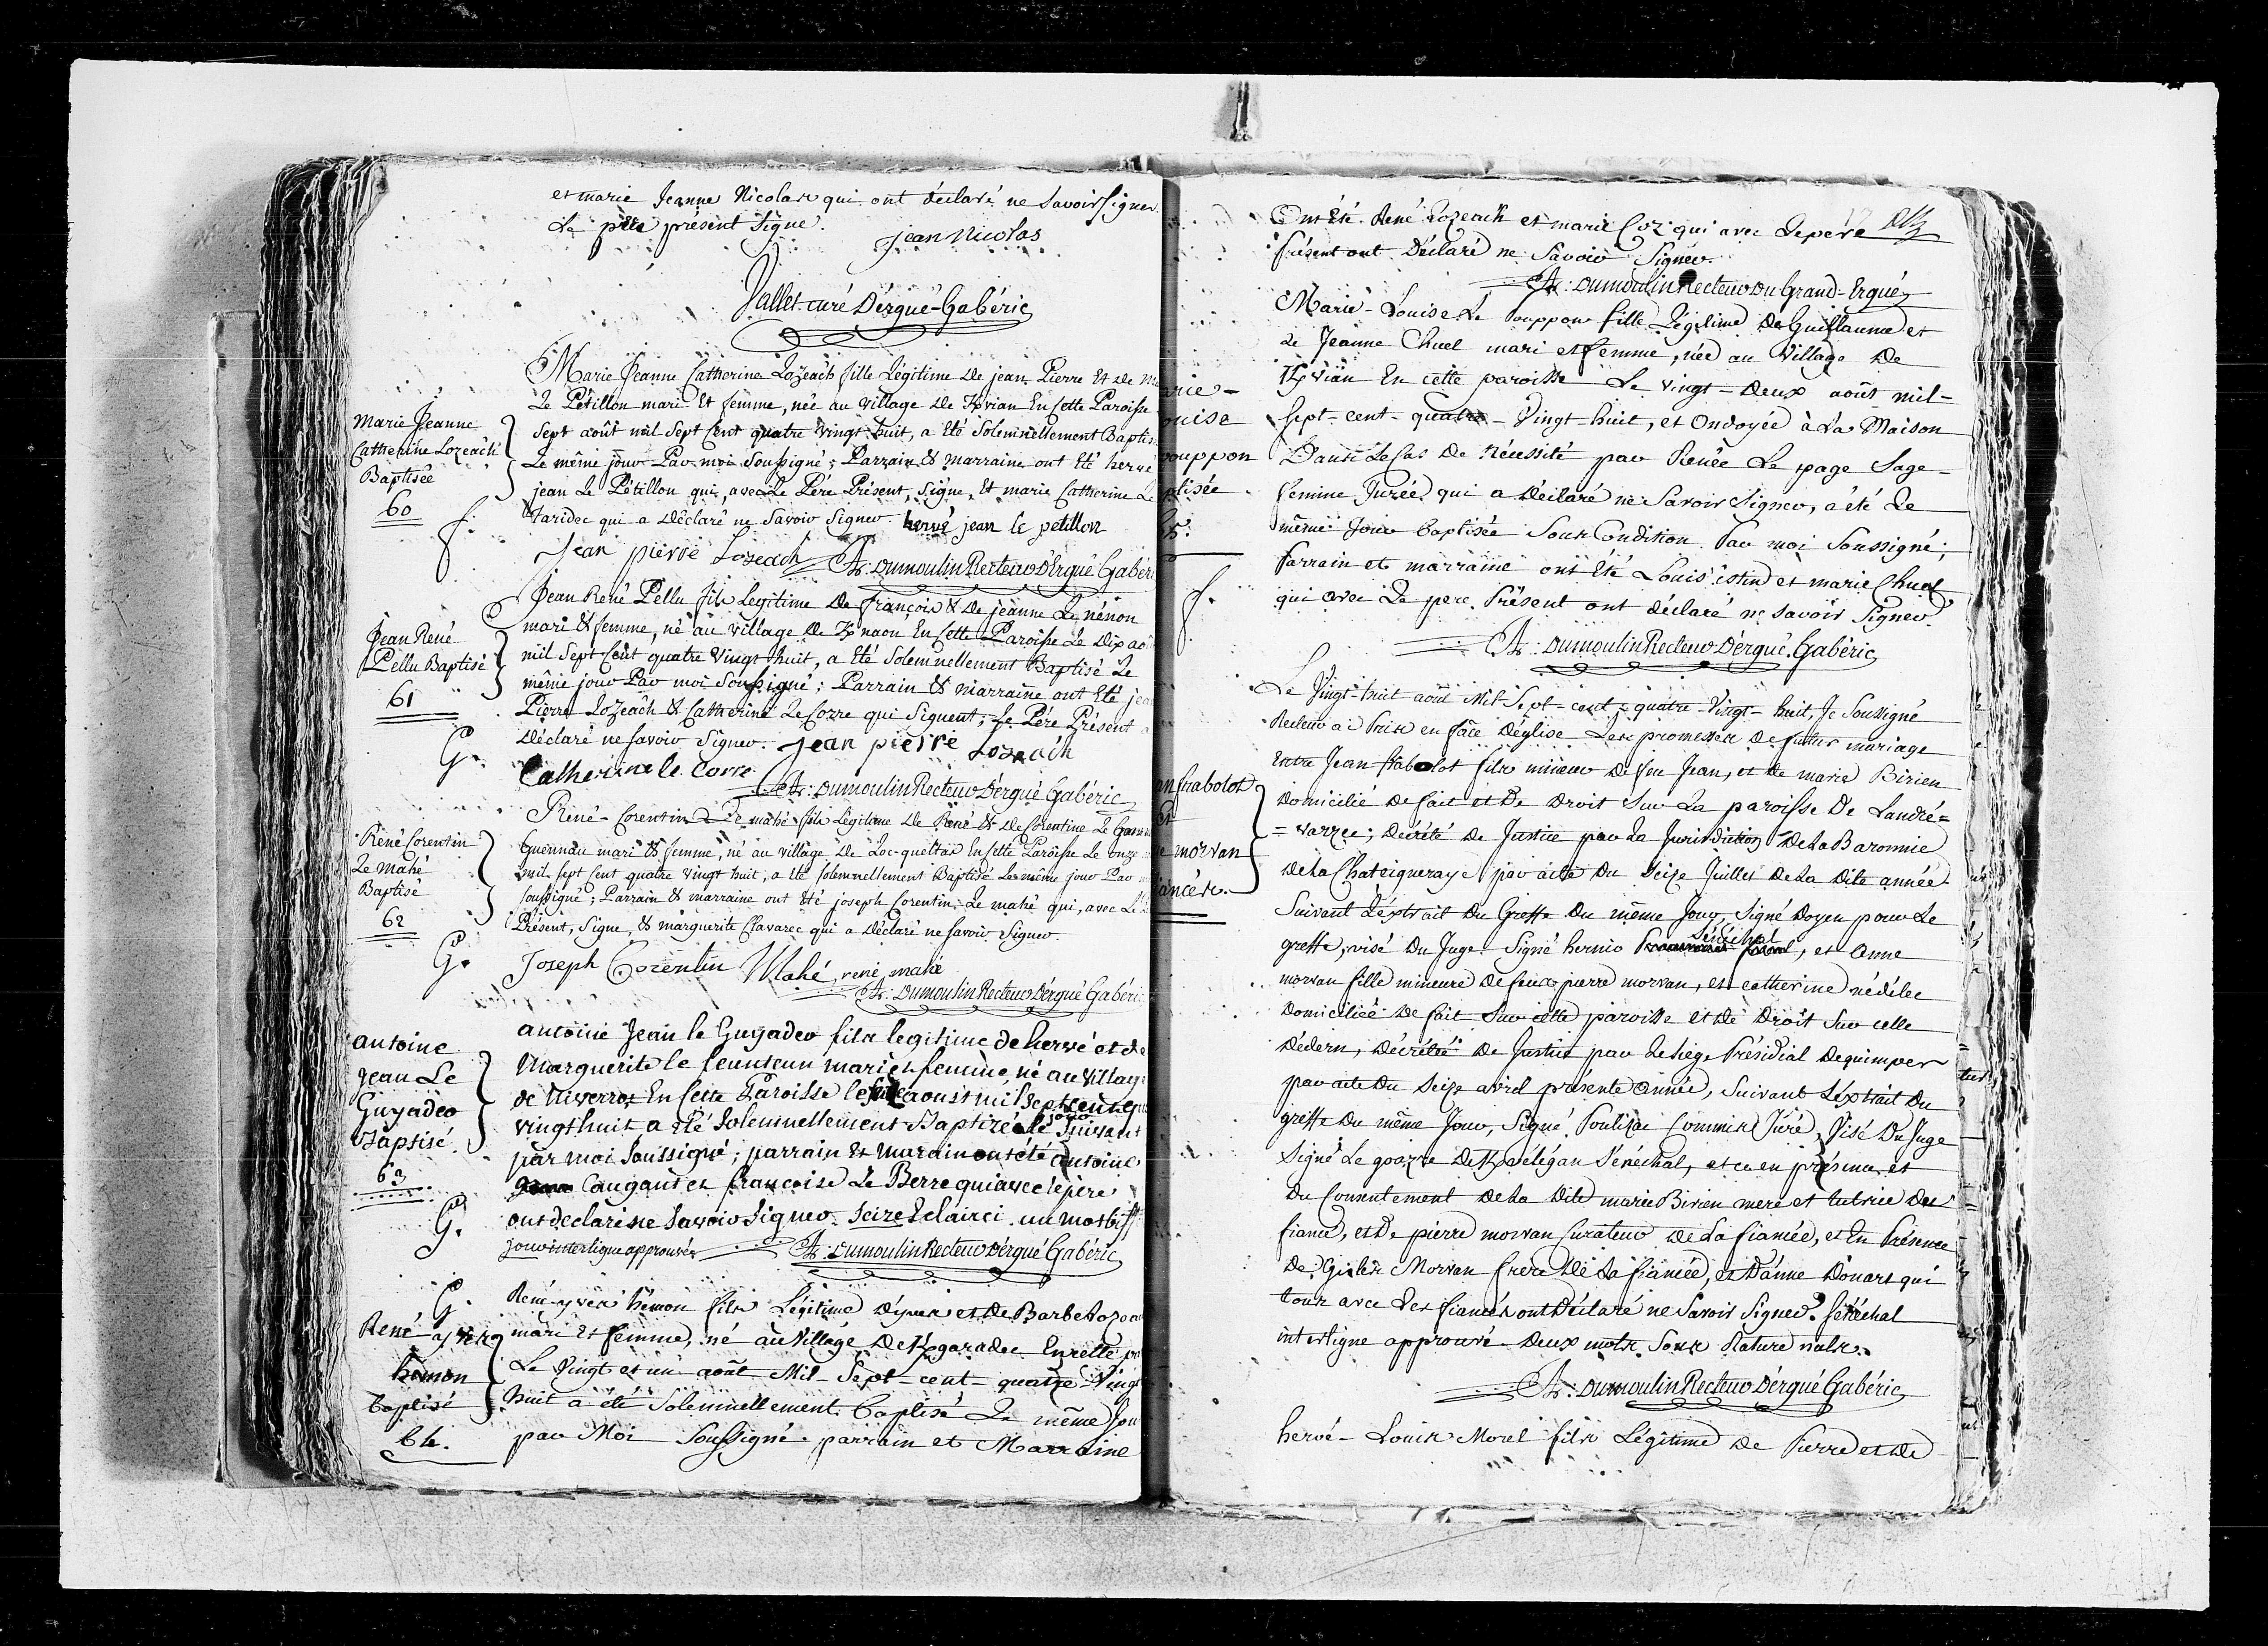 et marie Jeanne Nicolas qui ont déclaré ne Savoir Signer.
Le père présent Signe.
jean Nicolas
Jallet curé D'ergué-Gabéric
Marie Jeanne
Catherine Lozeäch
Baptisée
60
f.
Marie Jeanne Catherine Lozeach fille Légitime De jean Pierre Et De
Le Pétillon mari Et femme, née au village De Kvian En Cette Paroisse
Sept août mil Sept Cent quatre vingt huit, a Eté Solemnellement
Le même jour Par moi Soussigné; Parrain & marraine ont Eté hervé
jean Le Pétillon qui, avec Le Père Présent, Signe, Et marie Catherine Le
Jaridec qui a Déclaré ne Savoir Signer. hervé jean le petillon
Jean pierre Lozeach A: Dumoulin Recteur D'ergué Gabéric
Jean René
Pellu Baptisé
61
G.
Jean René Pellu fils Legitime De françois & De jeanne Le nénon
mari & femme, né au village De Knaou En Cette Paroisse Le Dix
mil Sept Cent quatre Vingt huit, a Eté Solemnellement Baptisé Le
même jour Par moi Soussigné; Parrain & marraine ont Eté
Pierre Lozeäch & Catherine Le Corre qui Signent; Le Père Présent a
Déclaré ne Savoir Signer. jean pierre Lozeach
Catherine le Corre
A: Dumoulin Recteur D'ergué Gabéric
René Corentin
Le Mahé
Baptisé
62
G.
René-Corentin Le mahé fils Légitime De René & De Corentine Le
Guennau mari & femme, né au village De Loc-queltas En Cette Paroisse Le onze
mil Sept Cent quatre vingt huit, a Eté Solemnellement Baptisé Le même jour Par
Soussigné; Parrain & marraine ont Eté joseph Corentin Le mahé qui, avec Le
Présent, Signe, & marguerite Clavarec qui a Déclaré ne Savoir Signer.
Joseph Corentin Mahé, rené mahé
A: Dumoulin Recteur D'ergué Gabéric
antoine
jean Le
Guyader
Baptisé
63
G.
antoine Jean le Guyader fils legitime de hervé et de
Marguerite le feunteun mari et femme, né au village
de Niverrot En Cette Paroisse le Seize aoust mil Sept Cent
vingt huit a Eté Solemnellement Baptizé Le jour Suivant
par moi Soussigné; parrain Et Maraine ont été antoine
Caugant et françoise Le Berre qui avec le père
ont declaré ne Savoir Signer. Seize Eclairci un mot biffé
jour interligne approuvés A: Dumoulin Recteur D'ergué Gabéric
G.
René yves
hémon
baptisé
64.
René yves hémon fils Légitime D'yves et De Barbe
mari Et femme, né au Village De Kgaradec En cette
Le Vingt et un août Mil-Sept-cent-quatre-Vingt
huit a été Solemnellement baptisé Le même
par Moi Soussigné. parrain et Marraine
ont Eté René Lozeach et marie Coz qui avec Le père
présent ont Déclaré ne Savoir Signer.
A: Dumoulin Recteur Du Grand-Ergué
Marie-Louise Le Pouppon fille Légitime De Guillaume et
De Jeanne Chuel mari et femme, née au Village De
Kvian En cette paroisse Le vingt-Deux août mil-
Sept-cent-quatre-Vingt huit, et Ondoyée à La Maison
Dans Le Cas De Nécessité par Renée Le page Sage-
femme Jurée qui a Déclaré ne Savoir Signer, a été Le
même Jour baptisée Sous Condition Par moi Soussigné;
Parrain et marraine ont Eté Louis istin et marie Chuel
qui avec Le pere Présent ont déclaré ne savoir Signer
A: Dumoulin Recteur D'ergué-Gabéric
ouise
ouppon
ptisée
f.
Le Vingt-huit août Mil Sept-cent-quatre-Vingt-huit, Je Soussigné
Recteur ai Pris en face D'église Les promesses De futur mariage
Entre Jean frabolot fils mineur De feu Jean, et De marie Birien
Domicilié De fait et De Droit Sur La paroisse De Landré=
=varzec; Décrété De Justice par La Jurisdiction De La Baronnie
De La Chateigneraye par acte Du Seize Juillet De La Dite année
Suivant L'éxtrait Du Greffe Du même Jour, Signé Doyen pour Le
greffe, visé Du Juge Signé hernio Sénéchal, et Anne
morvan fille mineure De feu pierre morvan, et catherine nédélec
Domiciliée De fait Sur cette paroisse et De Droit Sur celle
D'édern, Décrétée De Justice par Le Siège Présidial De quimper
par acte Du Seize avril présente année, Suivant L'éxtrait Du
greffe Du même Jour, Signé Poulizac Commis Juré, Visé Du Juge
Signé Le goazre De Kvélégan Sénéchal, et ce en présence et
Du Consentement De La Dite marie Birien mere et tutrice Du
fiancé, et De pierre morvan Curateur De La fiancée, et En Présence
De Gilles Morvan frere De La fiancée, et D'anne Douart qui
tous avec Les fiancés ont Déclaré ne Savoir Signer. Sénéchal
interligne approuvé Deux mots Sous Rature nuls.
A: Dumoulin Recteur D'ergué Gabéric
an frabolot
et
e morvan
iancés.
hervé-Louis Morel fils Légitime De Pierre et De